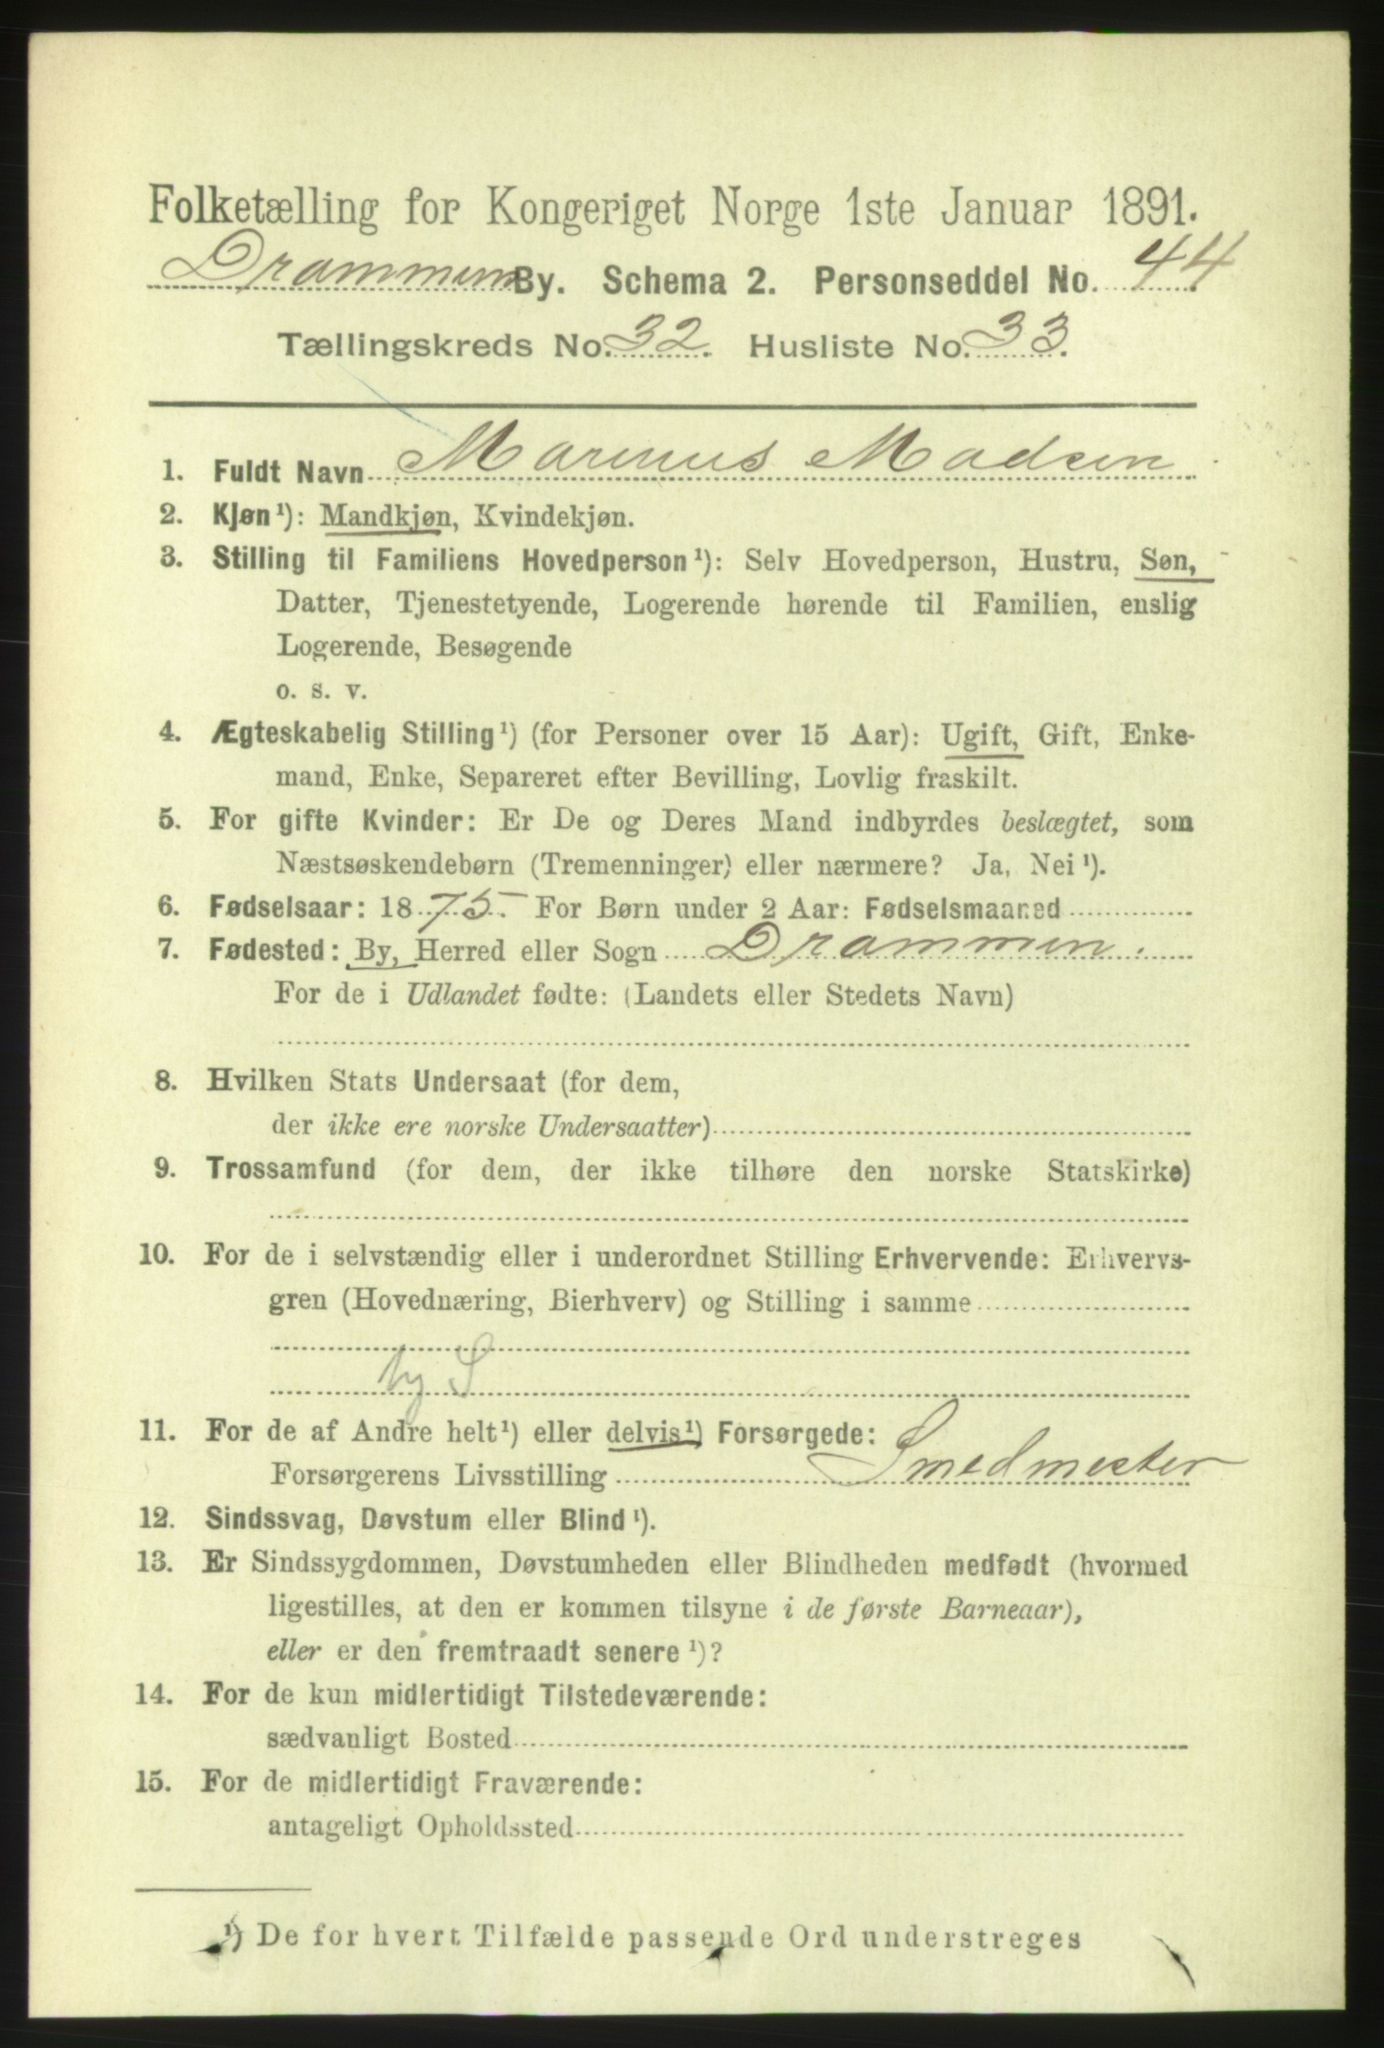 Folketælling for Kongeriget Norge 1ste Januar 1891.
Drammen By. Schema 2. Personseddel No. 44
Tællingskreds No. 32. Husliste No. 33.
1. Fuldt Navn Marinus Madsen
2. Kjøn¹): Mandkjøn, Kvindekjøn.
3. Stilling til Familiens Hovedperson¹): Selv Hovedperson, Hustru, Søn,
Datter, Tjenestetyende, Logerende hørende til Familien, enslig
Logerende, Besøgende
o. s. v.
4. Ægteskabelig Stilling¹) (for Personer over 15 Aar): Ugift, Gift, Enke-
mand, Enke, Separeret efter Bevilling, Lovlig fraskilt.
5. For gifte Kvinder: Er De og Deres Mand indbyrdes beslægtet, som
Næstsøskendebørn (Tremenninger) eller nærmere? Ja, Nei¹).
6. Fødselsaar: 1875. For Børn under 2 Aar: Fødselsmaaned
7. Fødested: By, Herred eller Sogn Drammen.
For de i Udlandet fødte: (Landets eller Stedets Navn)
8. Hvilken Stats Undersaat (for dem,
der ikke ere norske Undersaatter)
9. Trossamfund (for dem, der ikke tilhøre den norske Statskirke)
10. For de i selvstændig eller i underordnet Stilling Erhvervende: Erhvervs-
gren (Hovednæring, Bierhverv) og Stilling i samme
11. For de af Andre helt¹) eller delvis¹) Forsørgede:
Forsørgerens Livsstilling Smedmester
12. Sindssvag, Døvstum eller Blind¹).
13. Er Sindssygdommen, Døvstumheden eller Blindheden medfødt (hvormed
ligestilles, at den er kommen tilsyne i de første Barneaar),
eller er den fremtraadt senere¹)?
14. For de kun midlertidigt Tilstedeværende:
sædvanligt Bosted
15. For de midlertidigt Fraværende:
antageligt Opholdssted
¹) De for hvert Tilfælde passende Ord understreges